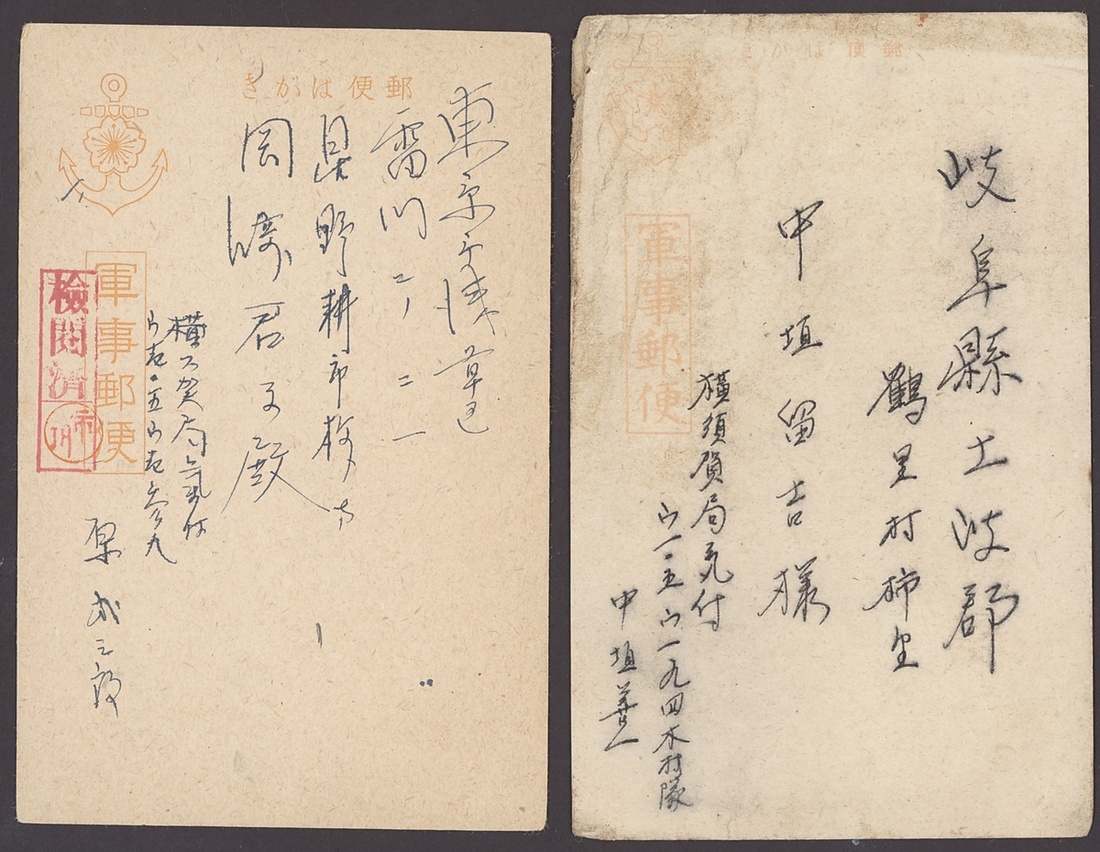 きがは便郵
東京市浅草区
雷川二ノ二一
野耕市様方
岡 君子殿
軍事郵便
検閲済
横須賀局気付
原 三段
きがは便郵
岐阜縣土岐郡
鶴里村柿野
中垣留吉様
軍事郵便
横須賀局気付
ウ一〇五ウ一九四木村隊
中垣善一